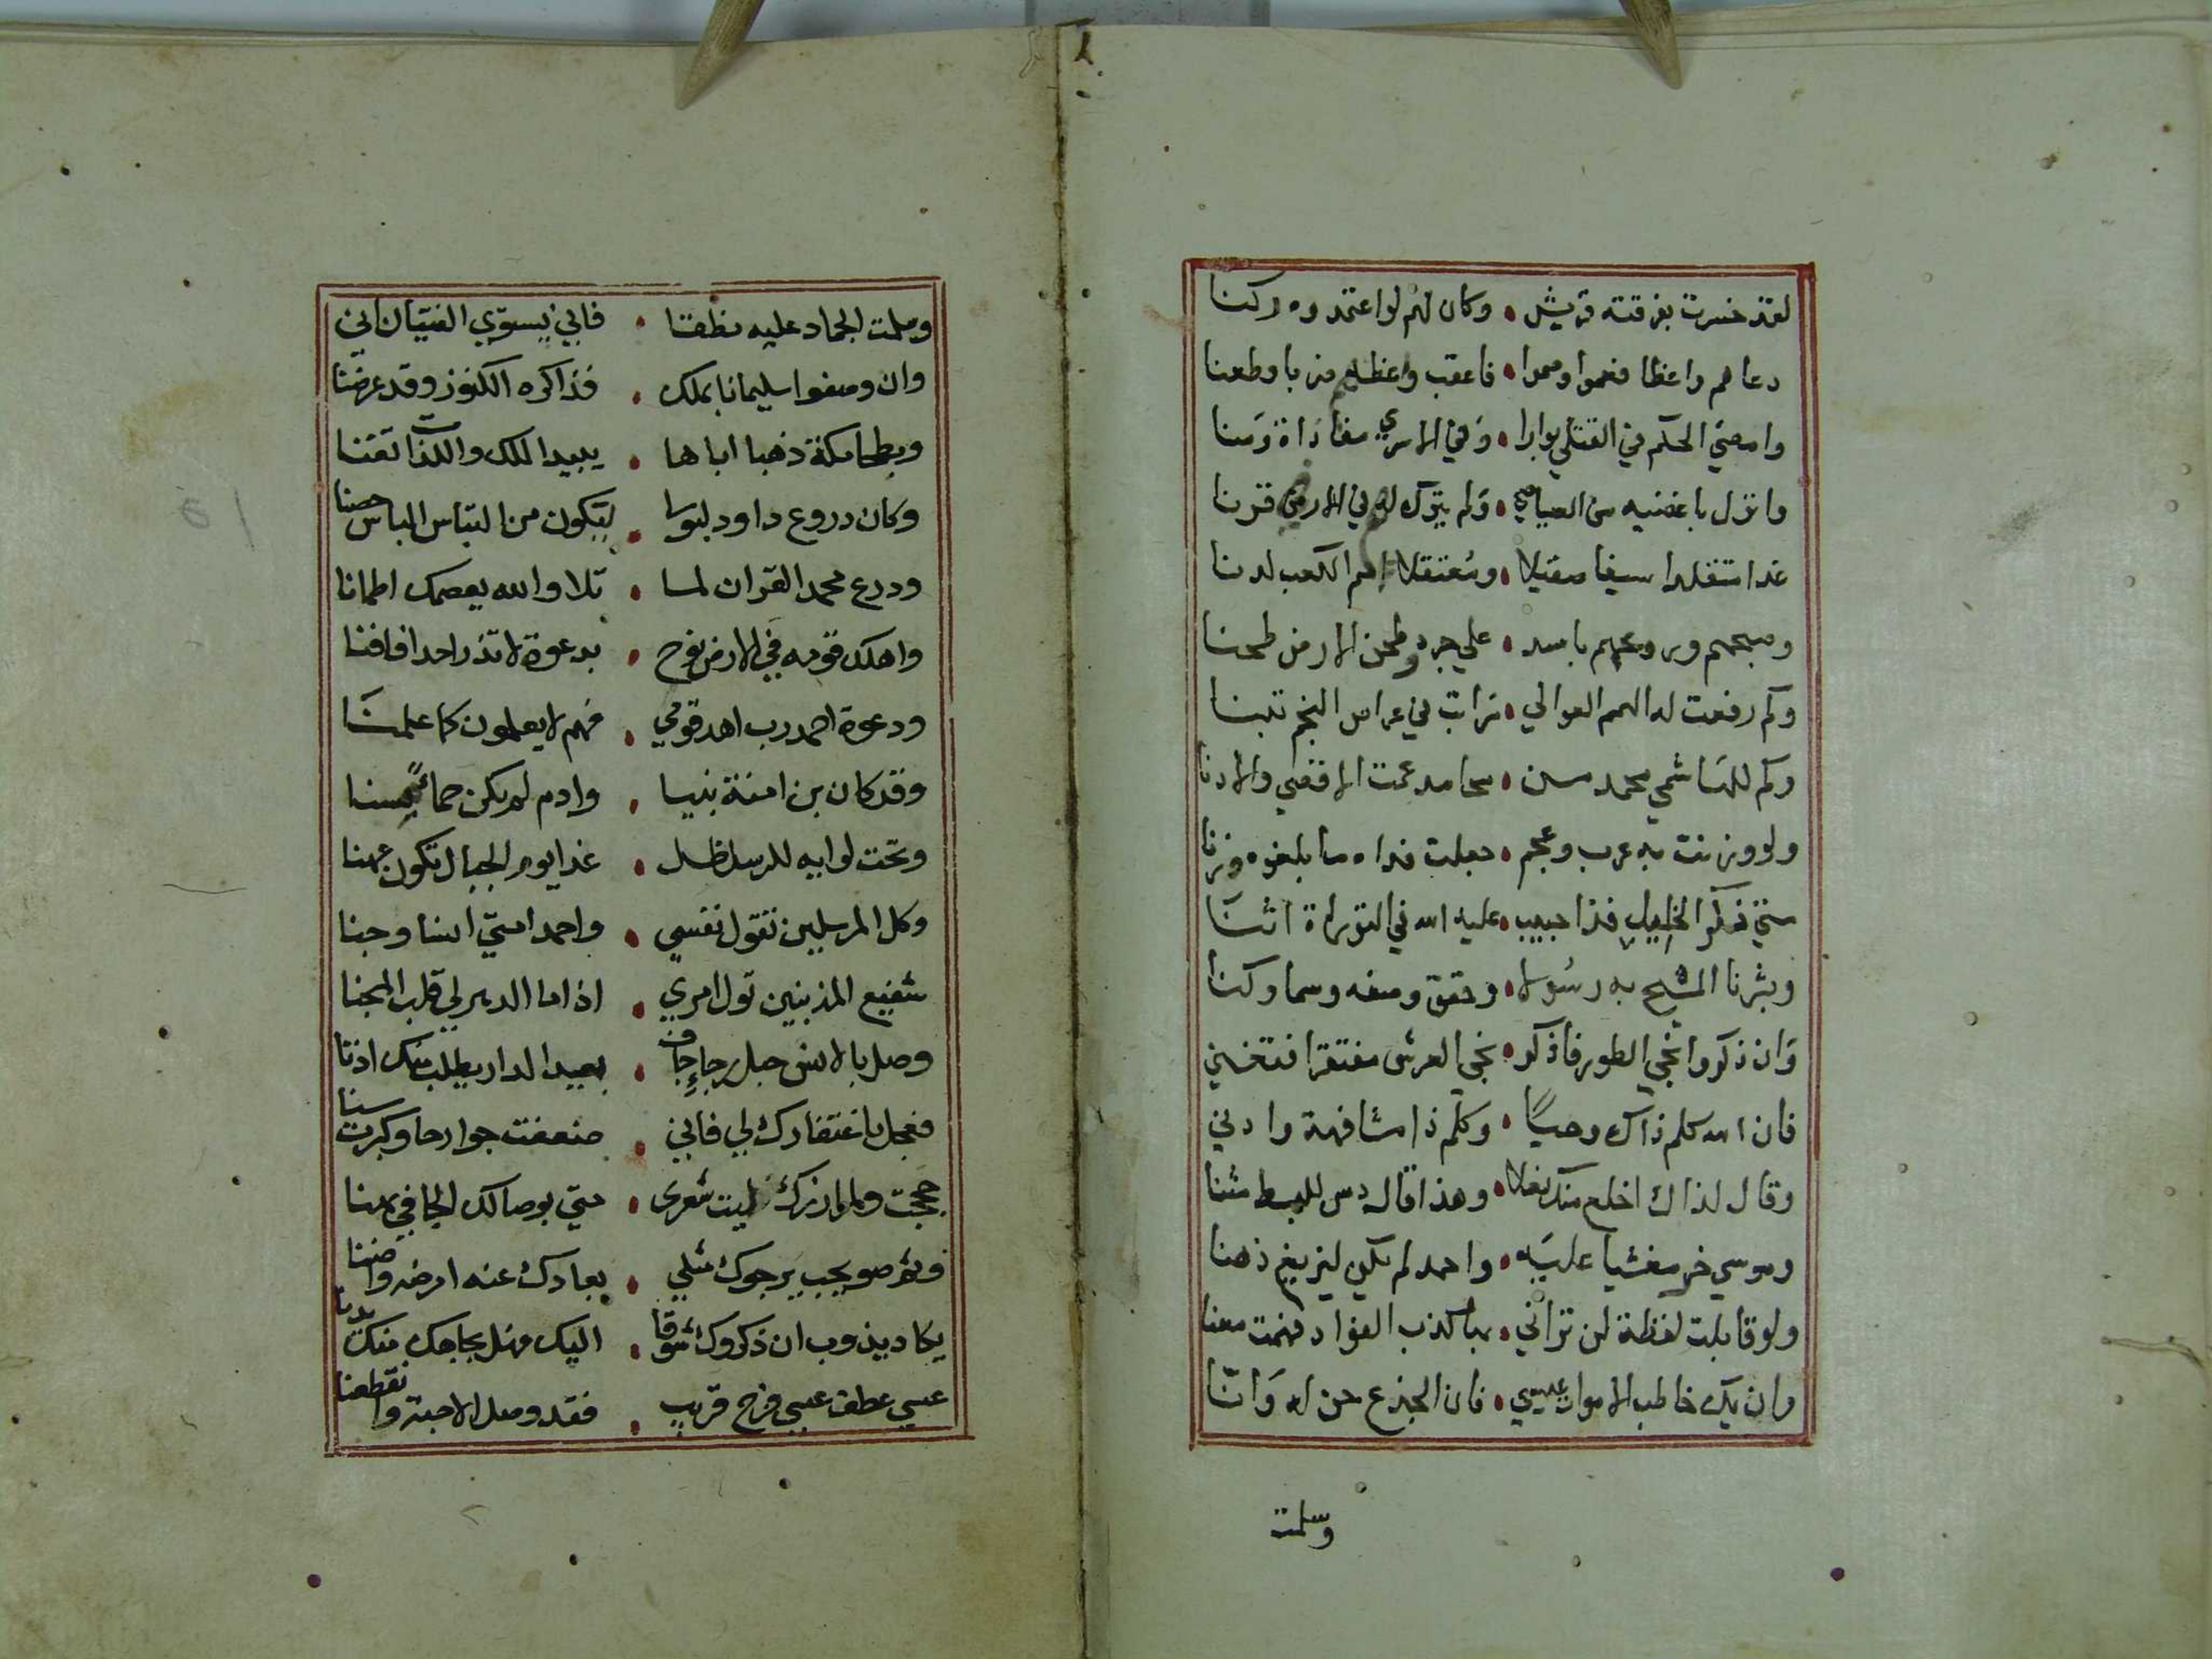 لقد خسرت بفرقته قريش • وكان لهم لو اعتمدوه ركنا
دعاهم واعظا فعموا وصموا • فاعقب واعظهم ضربا وطعنا
وامضي الحكم في القتلي بوارا • وفي الاسري مفاداة ومنا
وانزل باغضيه من الصياصي • ولم يترك له في الارض قرنا
غدا متقلدا سيفا صقيلا • ومعتقلا اصم الكعب لدنا
وصبحهم وروعهم باسد • علي جرد طحن الارض طحنا
وكم رفعت له الهمم العوالي • مراتب في عراص النجم تبنا
وكم للهاشمي محمد من • محامد عمت الاقصي والادنا
ولو وزنت به عرب وعجم • جعلت فداه ما بلغوه وزنا
متي ذكر الخليل فذا حبيب • عليه الله في التوراة اثنا
وبشرنا المسيح به رسولا • وحقق وصفه وسما وكنا
وان ذكروا نجي الطور فاذكر • نجي العرش مفتقرا فتغني
فان الله كلم ذاك وحيا • وكلم ذا مشافهة وادني
وقال لذاك اخلع منك نعلا • وهذا قال دس للبسط متنا
وموسي خر مغشيا عليه • واحمد لم يكن ليزيغ ذهنا
ولو قابلت لفظة لن تراني • بما كذب الفؤاد فهمت معنا
وان يك خاطب الاموات عيسي • فان الجذع حن له وانا
وسلمت
وسلمت الجماد عليه نطقا • فاني يستوي الفتيان اني
وان وصفوا سليمانا بملك • فذا كره الكنوز وقد عرضنا
وبطحا مكة ذهبا اباها • يبيد الملك واللذات تفنا
وكان دروع داود لبوسا • ليكون من التباس الباس حصنا
ودرع محمد القران لما • تلا والله يعصمك اطمانا
واهلك قومه في الارض نوح • بدعوة لا تذر احدا فافنا
ودعوة احمد رب اهد قومي • فهم لا يعلمون كما علمنا
وقد كان بن امنة نبيا • وادم لم يكن حمأ مسنا
وتحت لوايه للرسل ظل • غدا يوم الجبال تكون عهنا
وكل المرسلين تقول نفسي • واحمد امتي انسا وجنا
شفيع المذنبين تول امري • اذا ما الدهر لي قلب المجنا
وصل بالانس حبل رجاء جاف • بعيد الدار يطلب منك اذنا
فعجل بافتقادك لي فاني • ضعفت جوارحا وكبرت سنا
حججت ولم ازرك فليت شعري • متي بوصالك الجافي يهنا
وثم صويحب يرجوك مثلي • بعادك عنه امرضه واضنا
يكاد يذوب ان ذكروك شوقا • اليك فهل بجاهك منك يدنا
عسي عطف عسي فرح قريب • فقد وصل الاحبة وانقطعنا